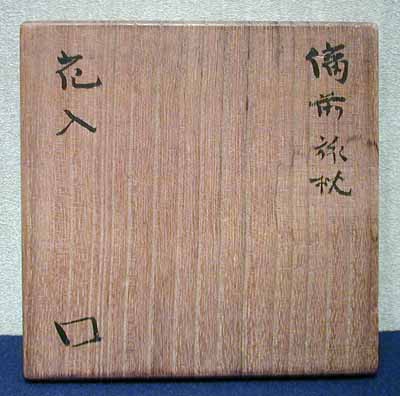 備前旅枕
花入
口